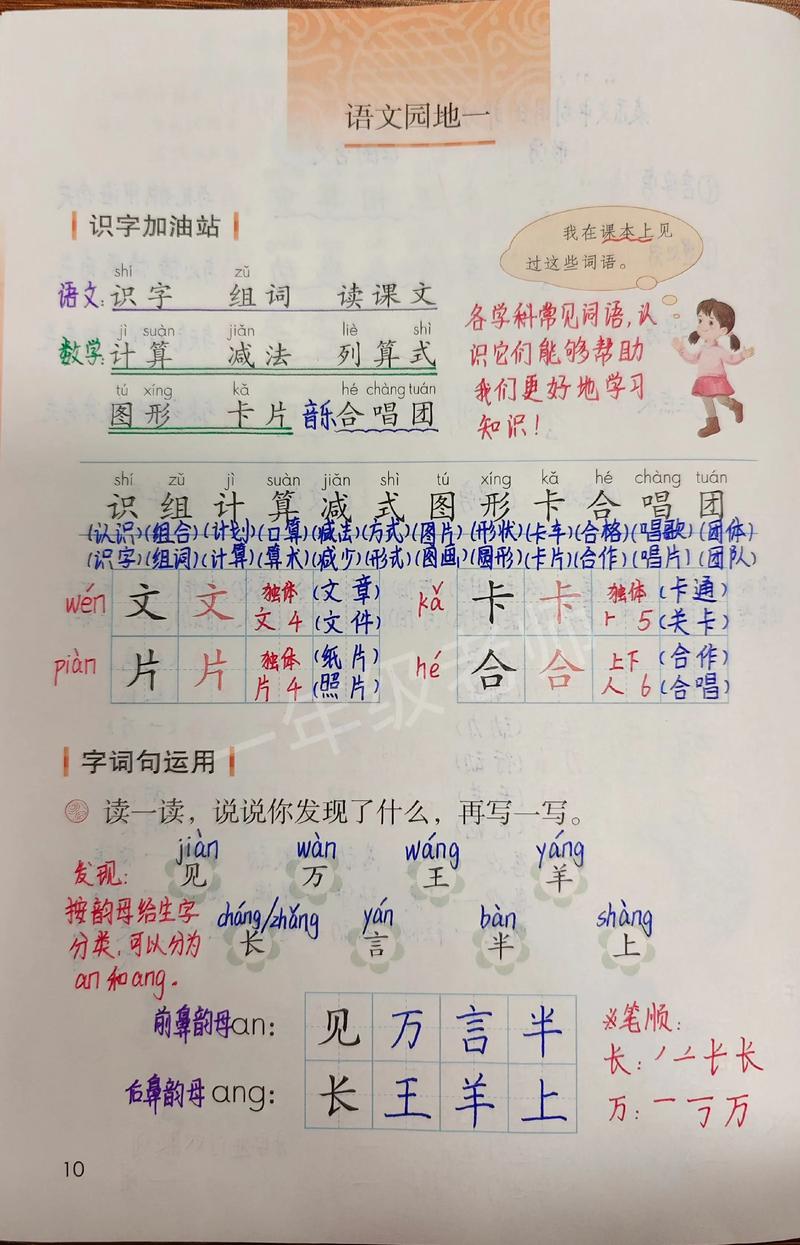 语文园地一
识字加油站
我在课本上见
过这些词语。
shí zǔ
语文:识字 组词 读课文
jì suàn jiǎn liè shì
数学:计算 减法 列算式
tú xíng kǎ hé chàng tuán
图形 卡片 音乐合唱团
各学科常见词语,认
识它们能够帮助
我们更好地学习
知识!
shí zǔ jì suàn jiǎn shì tú xíng kǎ hé chàng tuán
识组计算减式图形卡合唱团
(认识)(组合)(计划)(口算)(减法)(方式)(图片)(形状)(卡车)(合格)(唱歌)(团体)
(识字)(组词)(计算)(算术)(减少)(形式)(图画)(圆形)(卡片)(合作)(唱片)(团队)
wén 文 文 独体 (文章)
文 4 (文件)
kǎ 卡 卡 独体 (卡通)
卜 5 (关卡)
piàn 片 片 独体 (纸片)
片 4 (照片)
hé 合 合 上下 (合作)
人 6 (合唱)
一年级老师
字词句运用
读一读,说说你发现了什么,再写一写。
jiàn wàn wáng yáng
见 万 王 羊
发现:
按韵母给生字
分类,可以分为
an和ang.
cháng/zhǎng yán bàn shàng
长 言 半 上
前鼻韵母an: 见 万 言 半
后鼻韵母ang: 长 王 羊 上
※笔顺:
长:丿 𠂉 长 长
万:一 丆 万
10